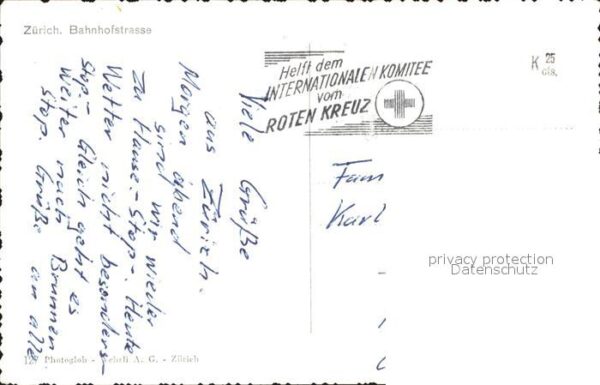 Zürich. Bahnhofstrasse
Helft dem
INTERNATIONALEN KOMITEE
vom
ROTEN KREUZ
K 25
cts.
Viele Grüße
aus Zürich.
Morgen abend
sind wir wieder
zu Hause.- Stop.- Heute
Wetter nicht besonders-
Stop.- Gleich geht es
weiter nach Brunnen
Stop. Grüße an alle.
Fam
Karl
privacy protection
Datenschutz
Photoglob - Wehrli A. G. - Zürich